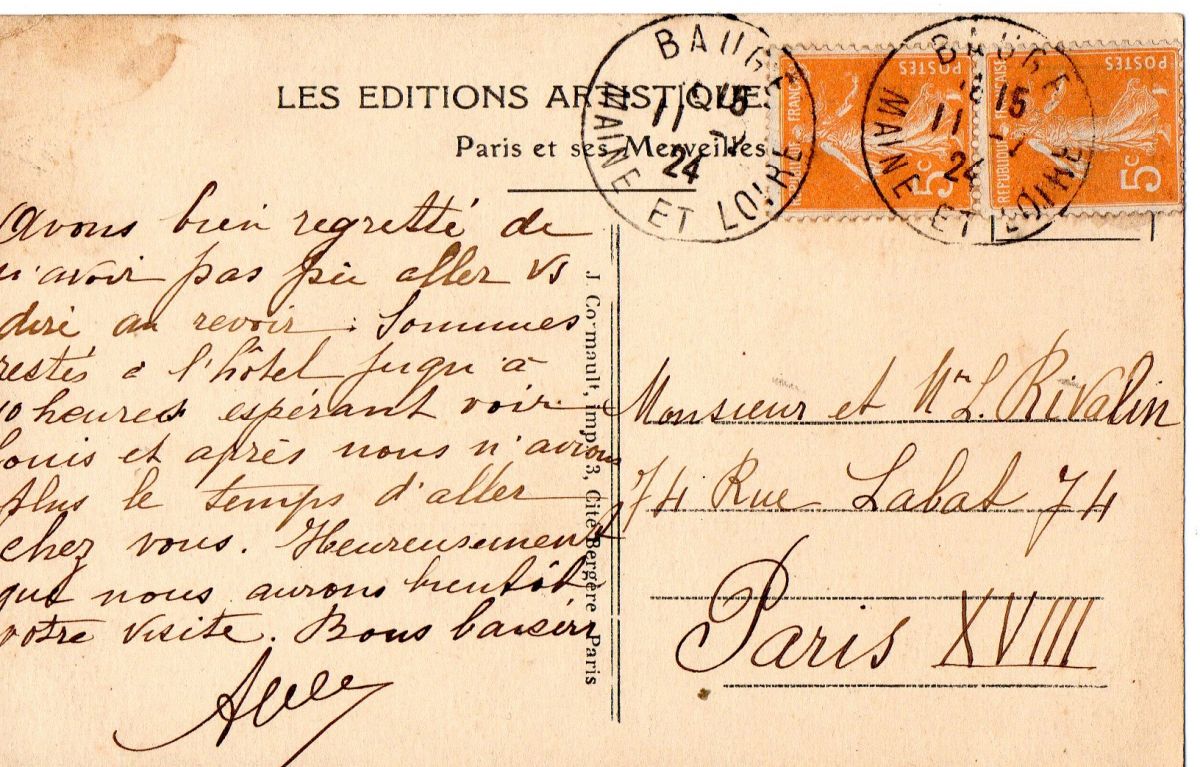 LES EDITIONS ARTISTIQUES
Paris et ses Merveilles
BAUGÉ
11
24
MAINE ET LOIRE
REPUBLIQUE FRANCAISE
POSTES
5c
BAUGÉ
15
11
24
MAINE ET LOIRE
REPUBLIQUE FRANCAISE
POSTES
5c
Avons bien regretté de
n'avoir pas pu aller vs
dire au revoir. Sommes
restés à l'hôtel jusqu'à
10 heures espérant voir
Louis et après nous n'avions
plus le temps d'aller
chez vous. Heureusement
que nous aurons bientôt
votre visite. Bons baisers
J. Cormault, imp., 3, Cité Bergère Paris
Monsieur et Mme L. Rivalin
74 Rue Labat 74
Paris XVIII